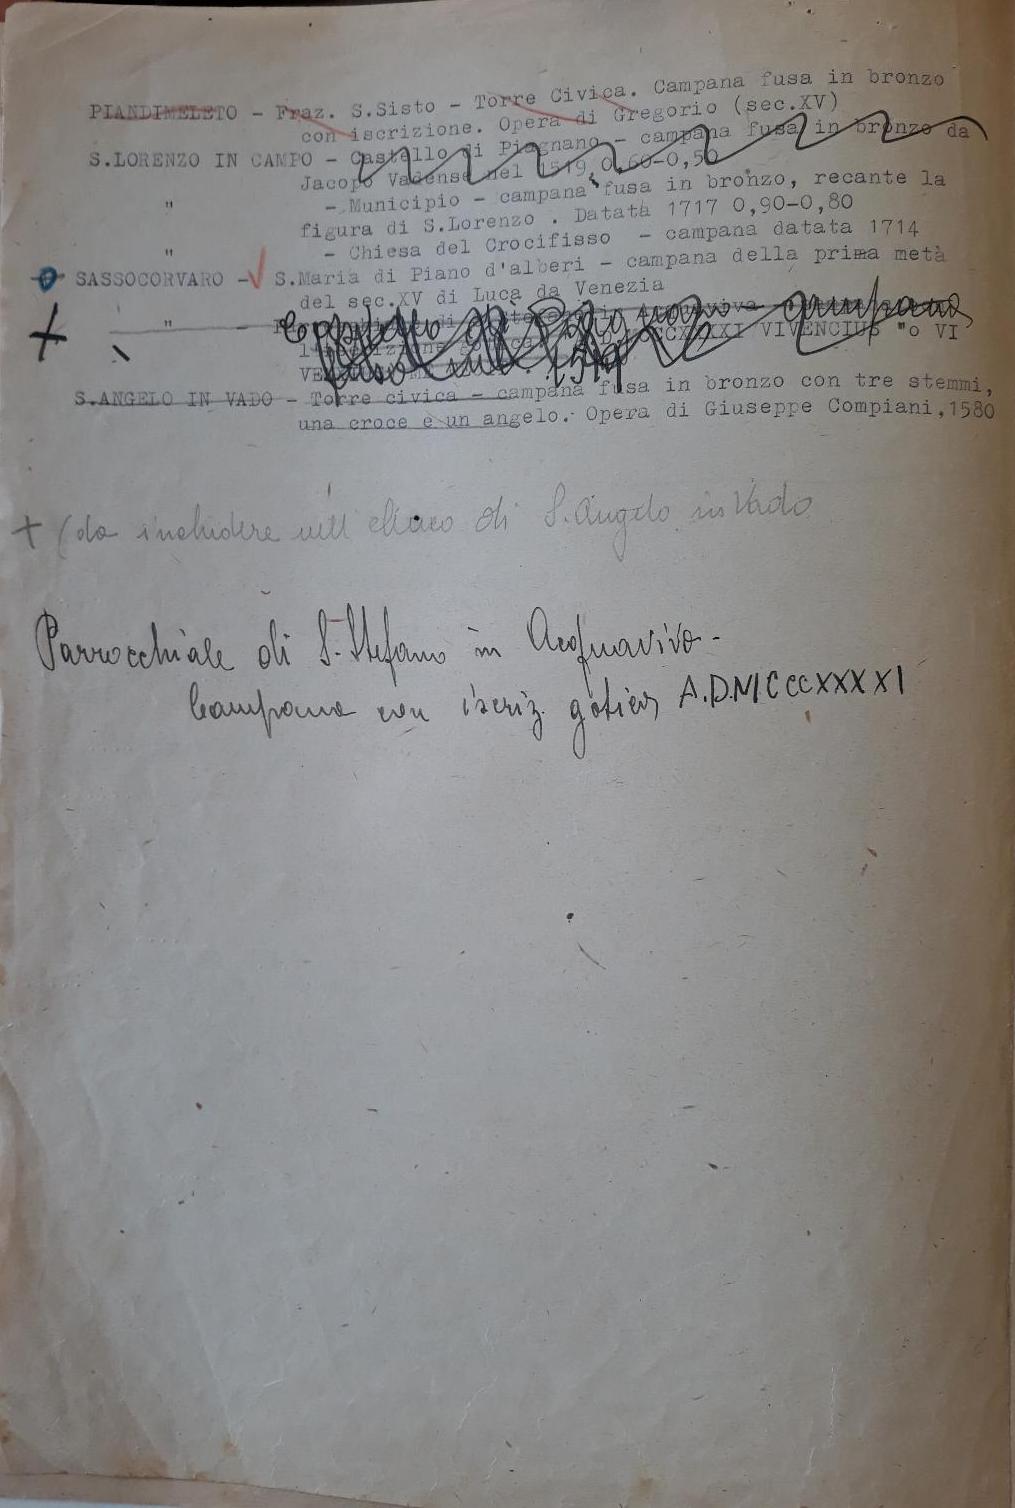 PIANDIMELETO - Fraz. S.Sisto - Torre Civica. Campana fusa in bronzo
con iscrizione. Opera di Gregorio (sec.XV)
S.LORENZO IN CAMPO - Castello di Piagnano - campana fusa in bronzo da
Jacopo Vadense nel 1519, 0,60-0,50
" - Municipio - campana fusa in bronzo, recante la
figura di S.Lorenzo . Datata 1717 0,90-0,80
" - Chiesa del Crocifisso - campana datata 1714
SASSOCORVARO - S.Maria di Piano d'alberi - campana della prima metà
del sec.XV di Luca da Venezia
+ " - campana
VIVENCIUS "o VI
1519
S.ANGELO IN VADO - Torre civica - campana fusa in bronzo con tre stemmi,
una croce e un angelo. Opera di Giuseppe Compiani,1580
+ (da includere nell' elenco di S. Angelo in Vado
Parrocchiale di S. Stefano in Acquaviva -
Campana con iscriz. gotica A.D.MCCCCXXXXI